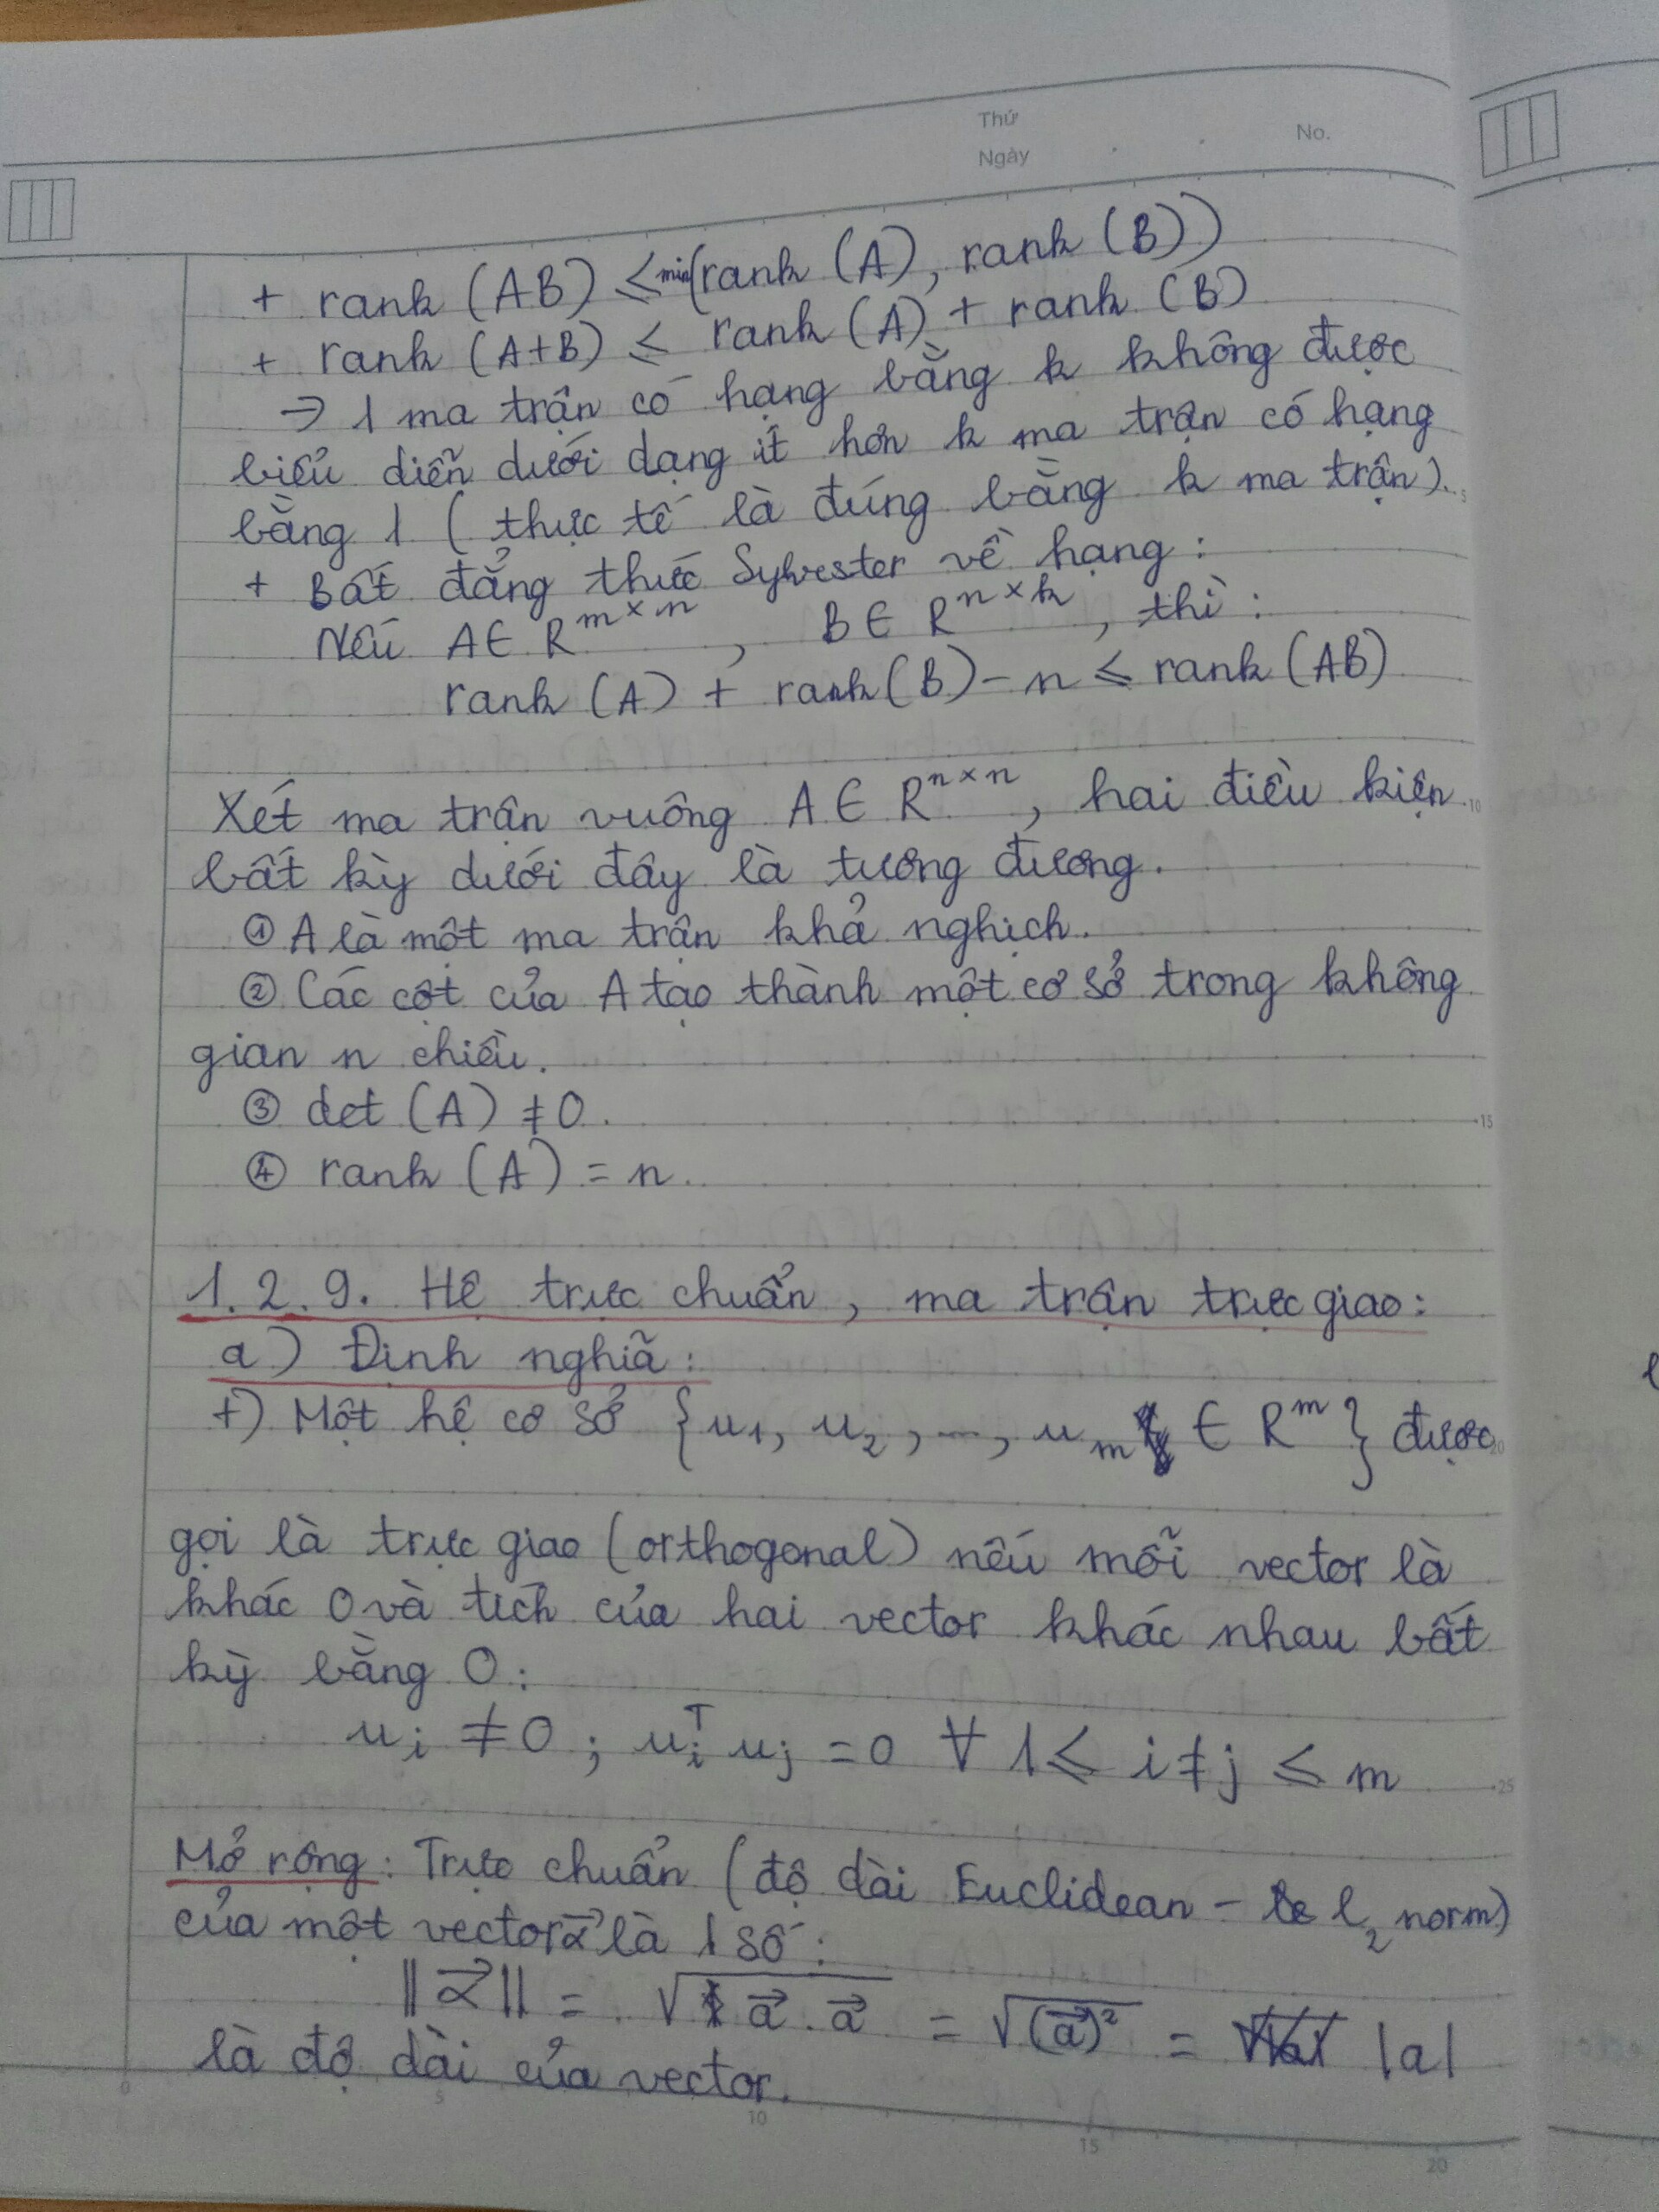 Thứ
Ngày
No.
+ rank (AB) ≤ min(rank (A), rank (B))
+ rank (A+B) ≤ rank (A) + rank (B)
→ 1 ma trận có hạng bằng k không được
biểu diễn dưới dạng ít hơn k ma trận có hạng
bằng 1 ( thực tế là đúng bằng k ma trận).
+ Bất đẳng thức Sylvester về hạng :
Nếu A ∈ R^{m×n} , B ∈ R^{n×k} , thì :
rank (A) + rank (B) - n ≤ rank (AB)
Xét ma trận vuông A ∈ R^{n×n} , hai điều kiện
bất kỳ dưới đây là tương đương.
① A là một ma trận khả nghịch.
② Các cột của A tạo thành một cơ sở trong không
gian n chiều.
③ det (A) ≠ 0.
④ rank (A) = n.
1.2.9. Hệ trực chuẩn, ma trận trực giao:
a) Định nghĩã :
+) Một hệ cơ sở {u₁, u₂, ..., uₘ ∈ R^m} được
gọi là trực giao (orthogonal) nếu mỗi vector là
khác 0 và tích của hai vector khác nhau bất
kỳ bằng 0 :
uᵢ ≠ 0 ; uᵢᵀ uⱼ = 0 ∀ 1 ≤ i ≠ j ≤ m
Mở rộng : Trực chuẩn (độ dài Euclidean - l₂ norm)
của một vector α⃗ là 1 số :
||α⃗|| = √(a⃗ . a⃗) = √((a⃗)²) = |a|
là độ dài của vector.
5
10
15
20
25
0
5
10
15
20